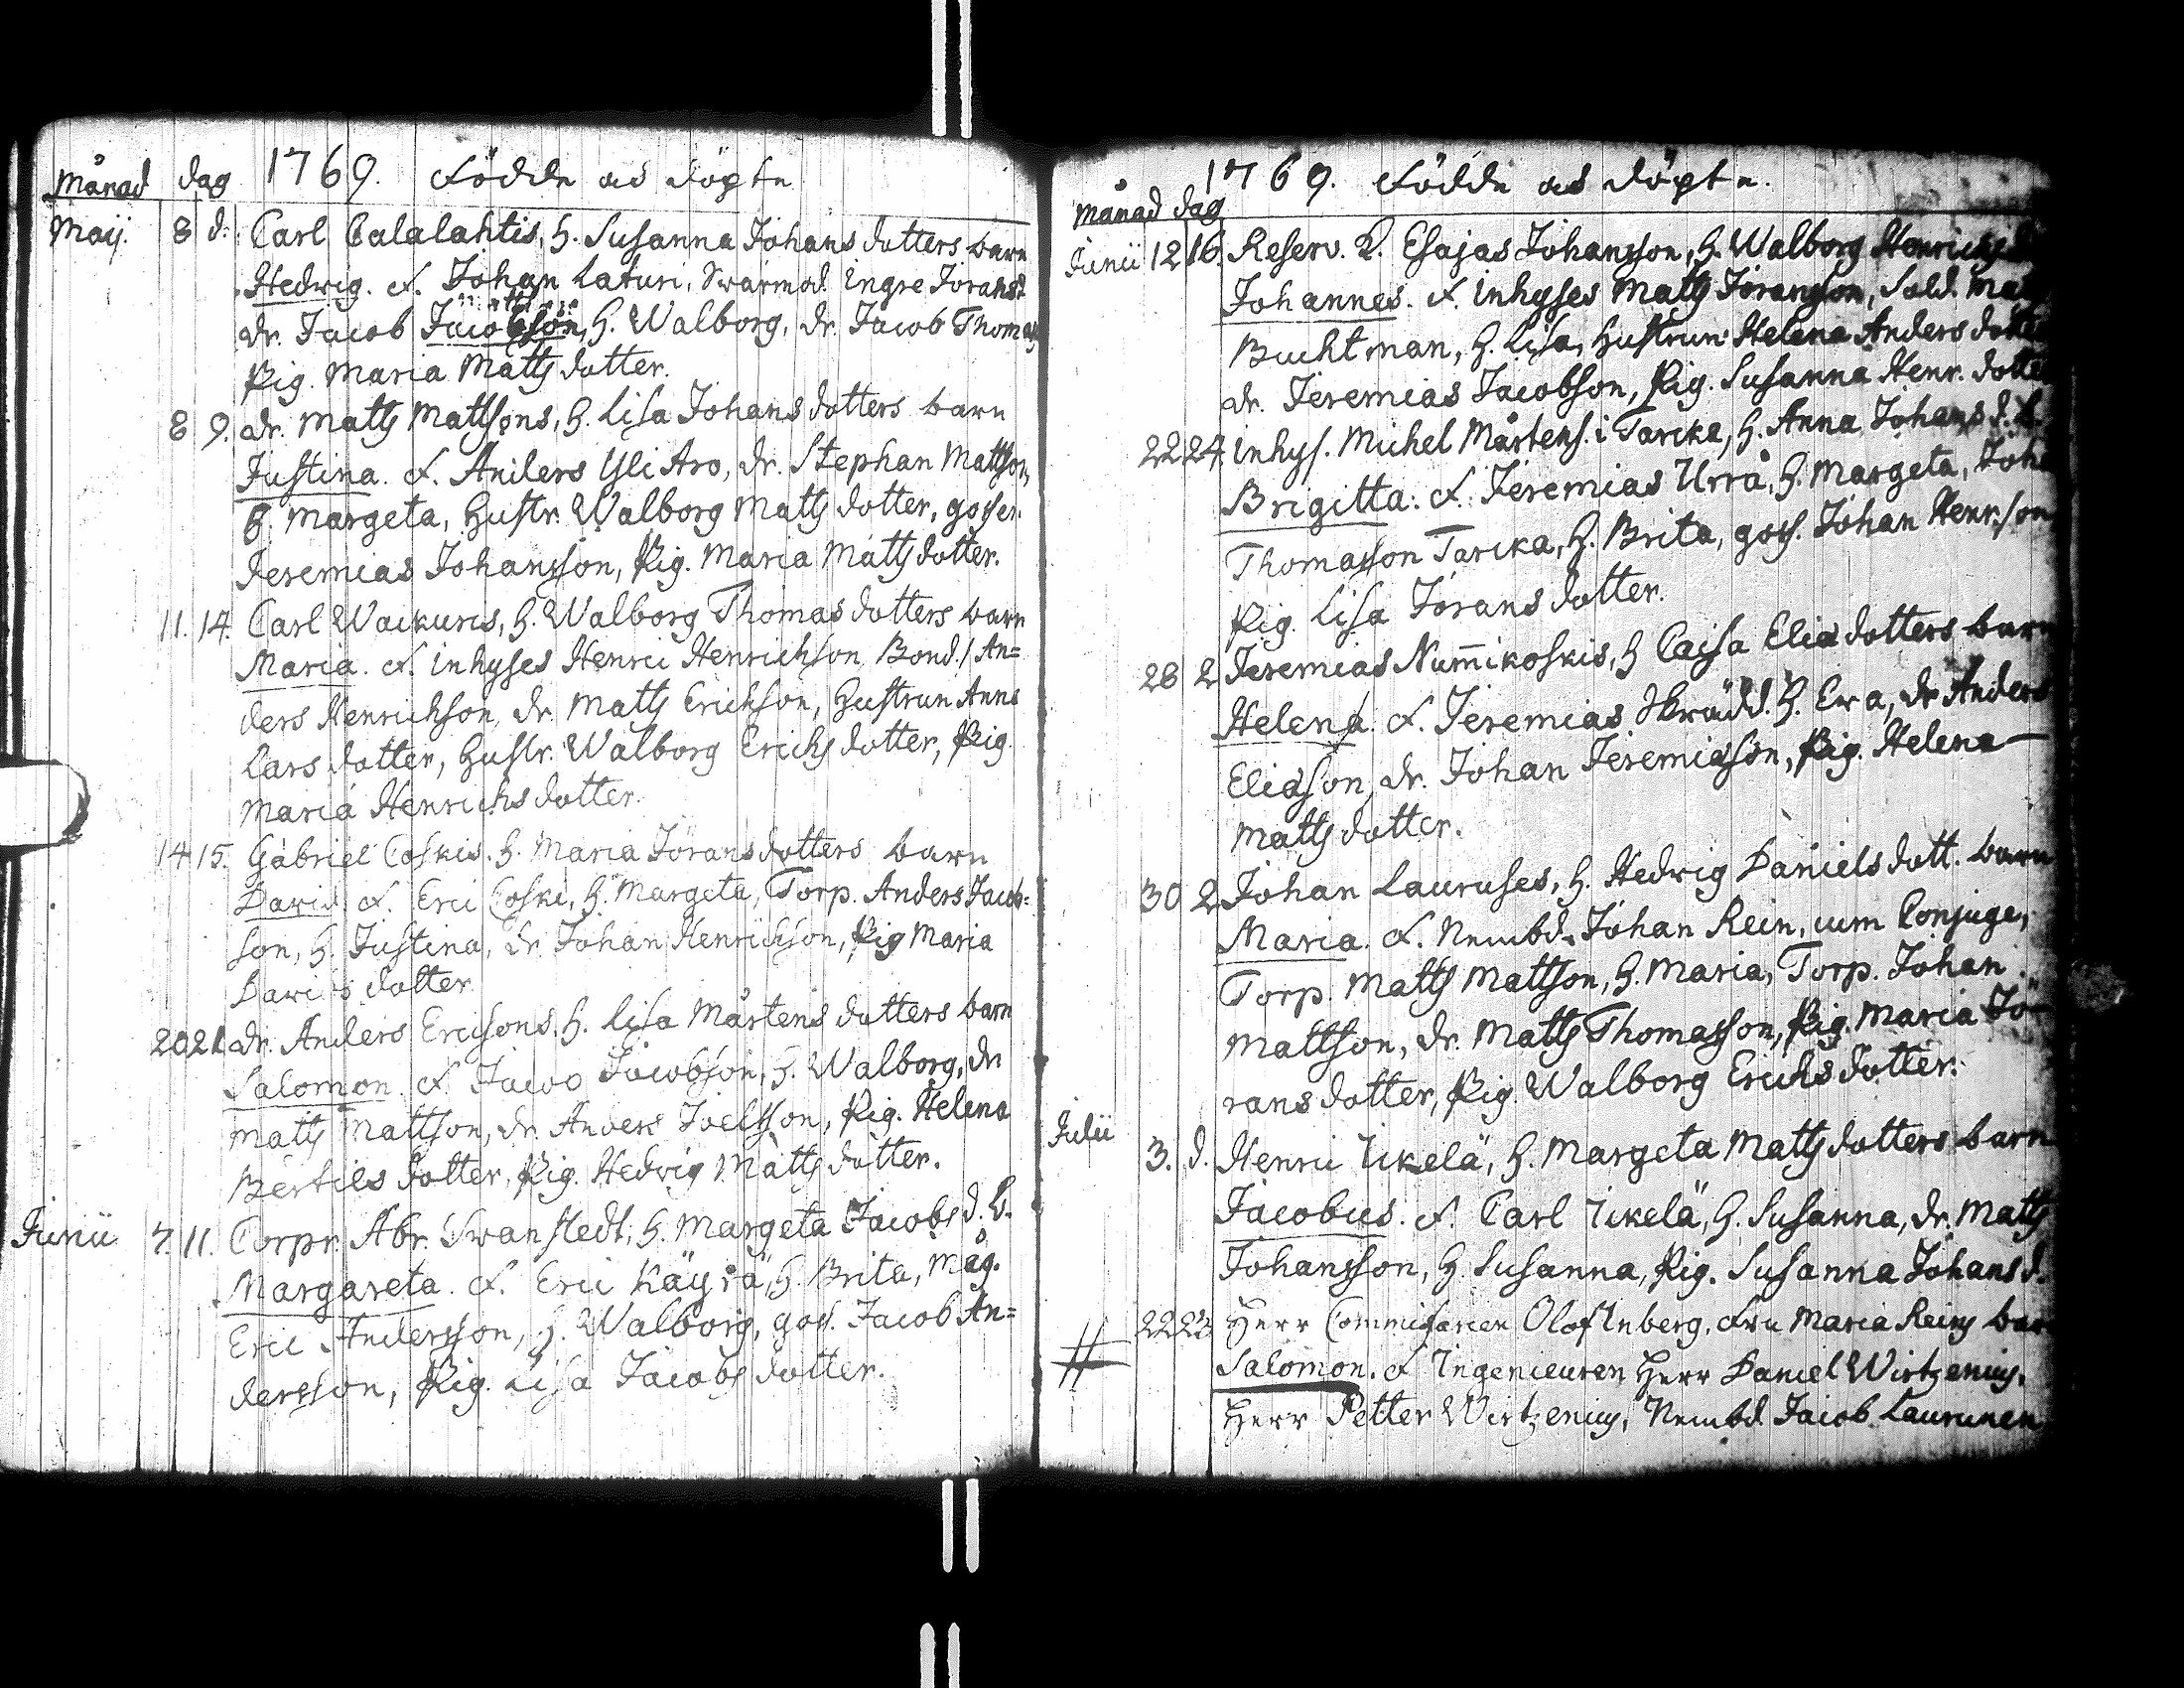 Månad dag 1769. Födde och döpte
Maij. 8 d. Carl Calalahtis, H. Susanna Johans dotters barn
Hedwig. F. Johan Laturi, Swärmod. Ingre Jörans d.
dr. Jacob Jacobsson, H. Walborg, dr. Jacob Thomas
Pig. Maria Matts dotter.
8 9. dr. Matts Mattsons, H. Lisa Johans dotters barn
Justina. F. Anders Yli Aro, dr. Stephan Mattson,
H. Margeta, Hustr. Walborg Matts dotter, gossen
Jeremias Johansson, Pig. Maria Matts dotter.
11. 14. Carl Waikuris, H. Walborg Thomas dotters barn
Maria. F. inhyses Henric Henrichson, Bond. An=
ders Henrichson, dr. Matts Erichson, Hustrun Anna
Lars dotter, Hustr. Walborg Erichs dotter, Pig.
Maria Henrichs dotter.
14 15. Gabriel Coskis. H. Maria Jörans dotters barn
David. F. Eric Coski, H. Margeta, Torp. Anders Jacob=
son, H. Justina, dr. Johan Henrichson, Pig Maria
Davids dotter
20 21 dr. Anders Ericsons, H. Lisa Mårtens dotters barn
Salomon. F. Jacob Jacobson, H. Walborg, dr
Matts Mattson, dr. Anders Joelsson, Pig. Helena
Bertils dotter, Pig. Hedvig Matts dotter.
Junii 7. 11. Corpr. Abr. Swanstedt, H. Margeta Jacobs d. b.
Margareta. F. Eric Käyrä, H. Brita, Måg.
Eric Andersson, H. Walborg, goss. Jacob An=
dersson, Pig. Lisa Jacobs dotter.
1769. Födde och döpte.
Månad dag
Junii 12 16. Reserv. K. Esajas Johansson, H. Walborg Henrichs d
Johannes. F. inhyses Matts Jöransson, Sold. Mat
Buchtman, H. Lisa, Hustrun Helena Anders dotter
dr. Jeremias Jacobson, Pig. Susanna Henr. dotte
22 24 inhys. Michel Mårtens. i Tarcka, H. Anna Johans d. b.
Brigitta. F. Jeremias Urra, H. Margeta, Joh
Thomasson Tarcka, H. Brita, goss. Johan Henr. son
Pig. Lisa Jörans dotter.
28 2 Jeremias Nummikoskis, H Caisa Elias dotters barn
Helena. F. Jeremias Skrädd. H. Ewa, dr Anders
Eliason, dr. Johan Jeremiasson, Pig. Helena
Matts dotter.
30 2 Johan Lauruses, H. Hedwig Daniels dott. barn
Maria. F. Nembd. Johan Rein, cum Conjuge,
Torp. Matts Mattson, H. Maria, Torp. Johan
Mattson, dr. Matts Thomasson, Pig. Maria Jö
rans dotter, Pig. Walborg Erichs dotter.
Julii 3. d. Henric Ikelä, H. Margeta Matts dotters barn
Jacobus. F. Carl Ikelä, H. Susanna, dr. Matts
Johansson, H Susanna, Pig. Susanna Johans d.
22 23 Herr Commissarien Olof Inberg, Fru Maria Reins bar
# Salomon. F Ingenieuren Herr Daniel Wirtzenius,
Herr Petter Wirtzenius, Nembd. Jacob Laurunen